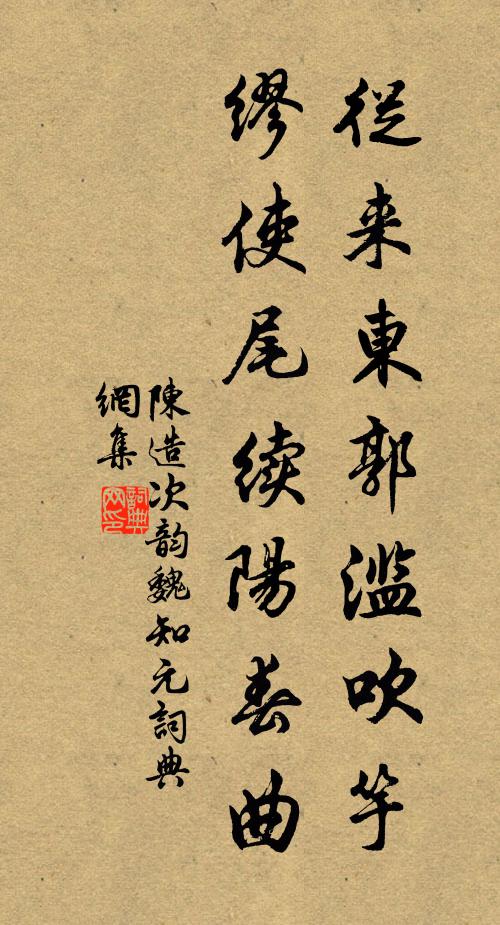 從来東郭滥吹竽
繆使尾续陽春曲
陳造次韵魏知元詞典
網集
詞典
网印